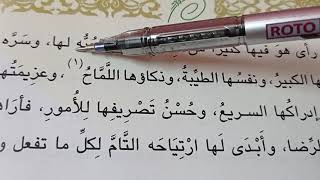 ROTO
رأى هو فيها كبير
لها، وسَرَّه
ها الكبيرُ، ونفسُها الطيّبةُ، وذكاؤها اللَّمَّاحُ (١)، وعزيمَتُها
إدراكُها السريعُ، وحُسْنُ تَصْرِيفِها للأُمورِ، فأراها
الرِّضا، وأَبْدَى لَها ارْتِياحَه التَّامَّ لِكلِّ ما تفعل و